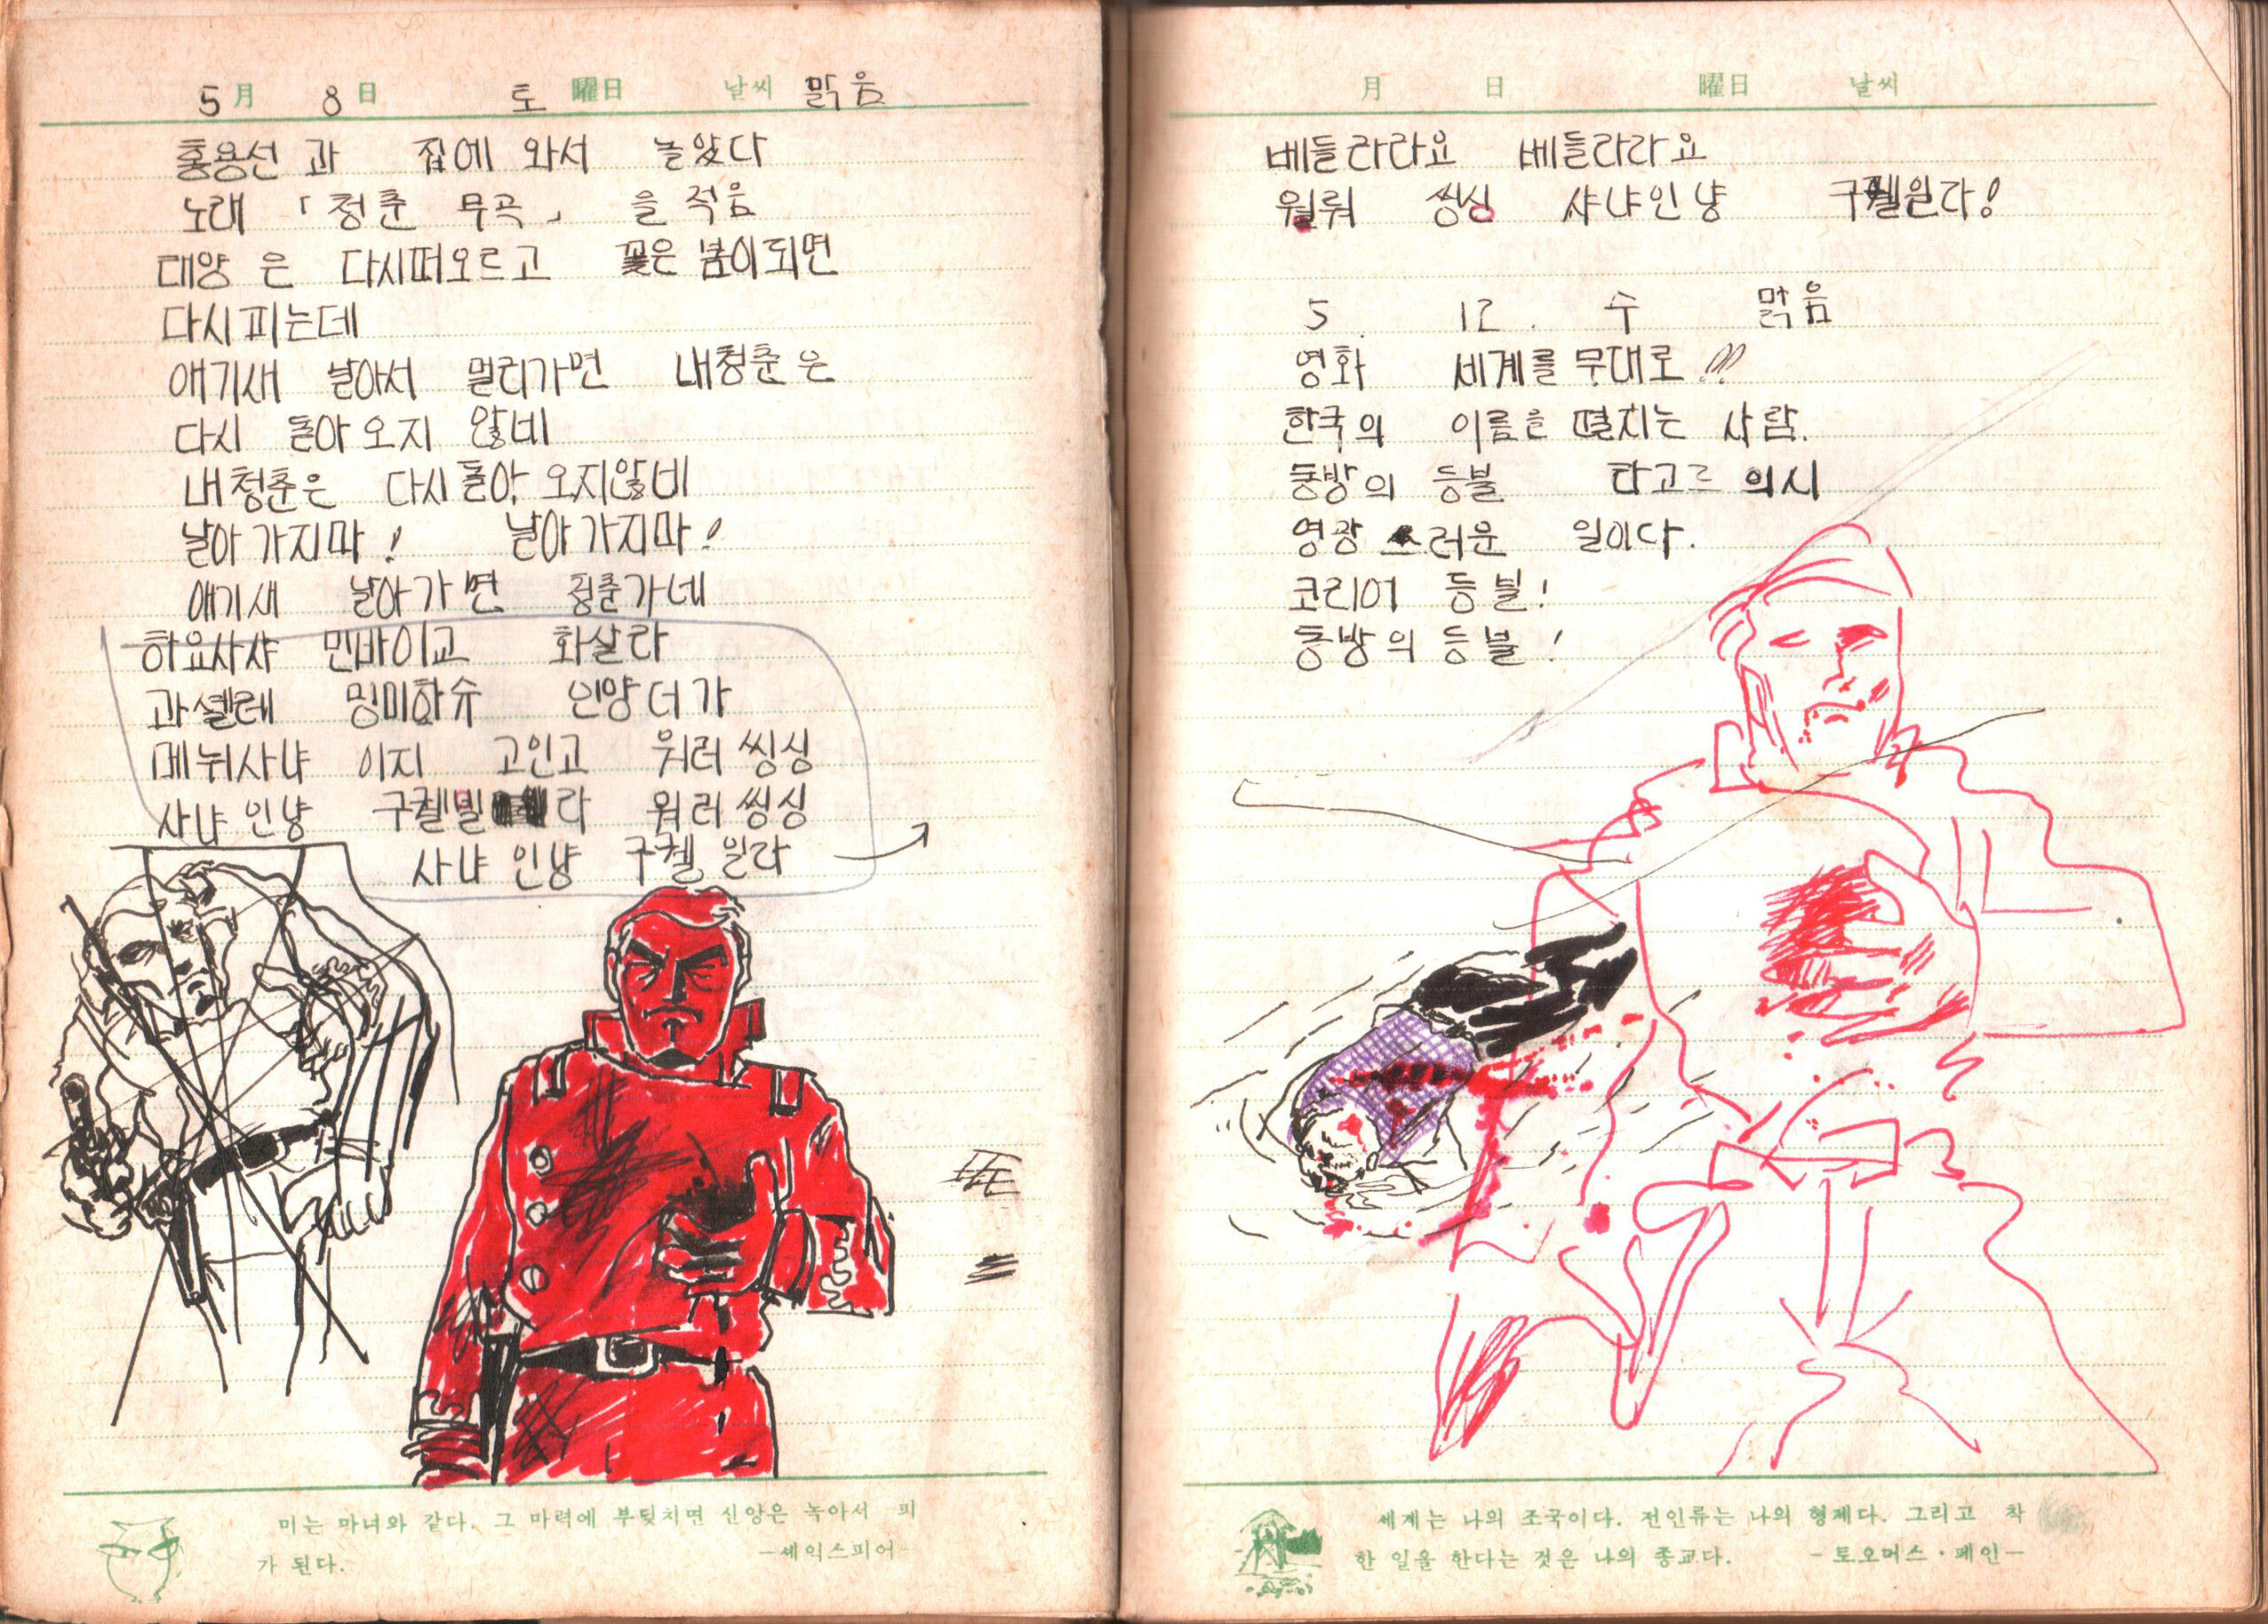 5月 8日 토 曜日 날씨 맑음
홍용선과 집에 와서 놀았다
노래 「청춘 무곡」 을 적음
태양은 다시떠오르고 꽃은 봄이되면
다시피는데
얘기새 날아서 멀리가면 내청춘은
다시 돌아오지 않네
내청춘은 다시돌아 오지않네
날아가지마! 날아가지마!
얘기새 날아가면 청춘가네
하요사샤 민바이교 화살라
과셀레 밍미하슈 인양더가
메뉘사냐 이지 고인고 워러씽싱
사냐인냥 구켈빌라 워러씽싱
사냐인냥 구켈일라
미는 마녀와 같다. 그 마력에 부딪치면 신앙은 녹아서 피
가 된다. —셰익스피어—
月 日 曜日 날씨
베들라라요 베들라라요
월뤄 씽싱 샤냐인냥 구켈일라!
5. 12. 수 맑음
영화 세계를무대로!!!
한국의 이름을 떨치는 사람.
동방의 등불 타고르의시
영광스러운 일이다.
코리어 등불!
동방의등불!
세계는 나의 조국이다. 전인류는 나의 형제다. 그리고 착
한 일을 한다는 것은 나의 종교다. —토오머스·페인—